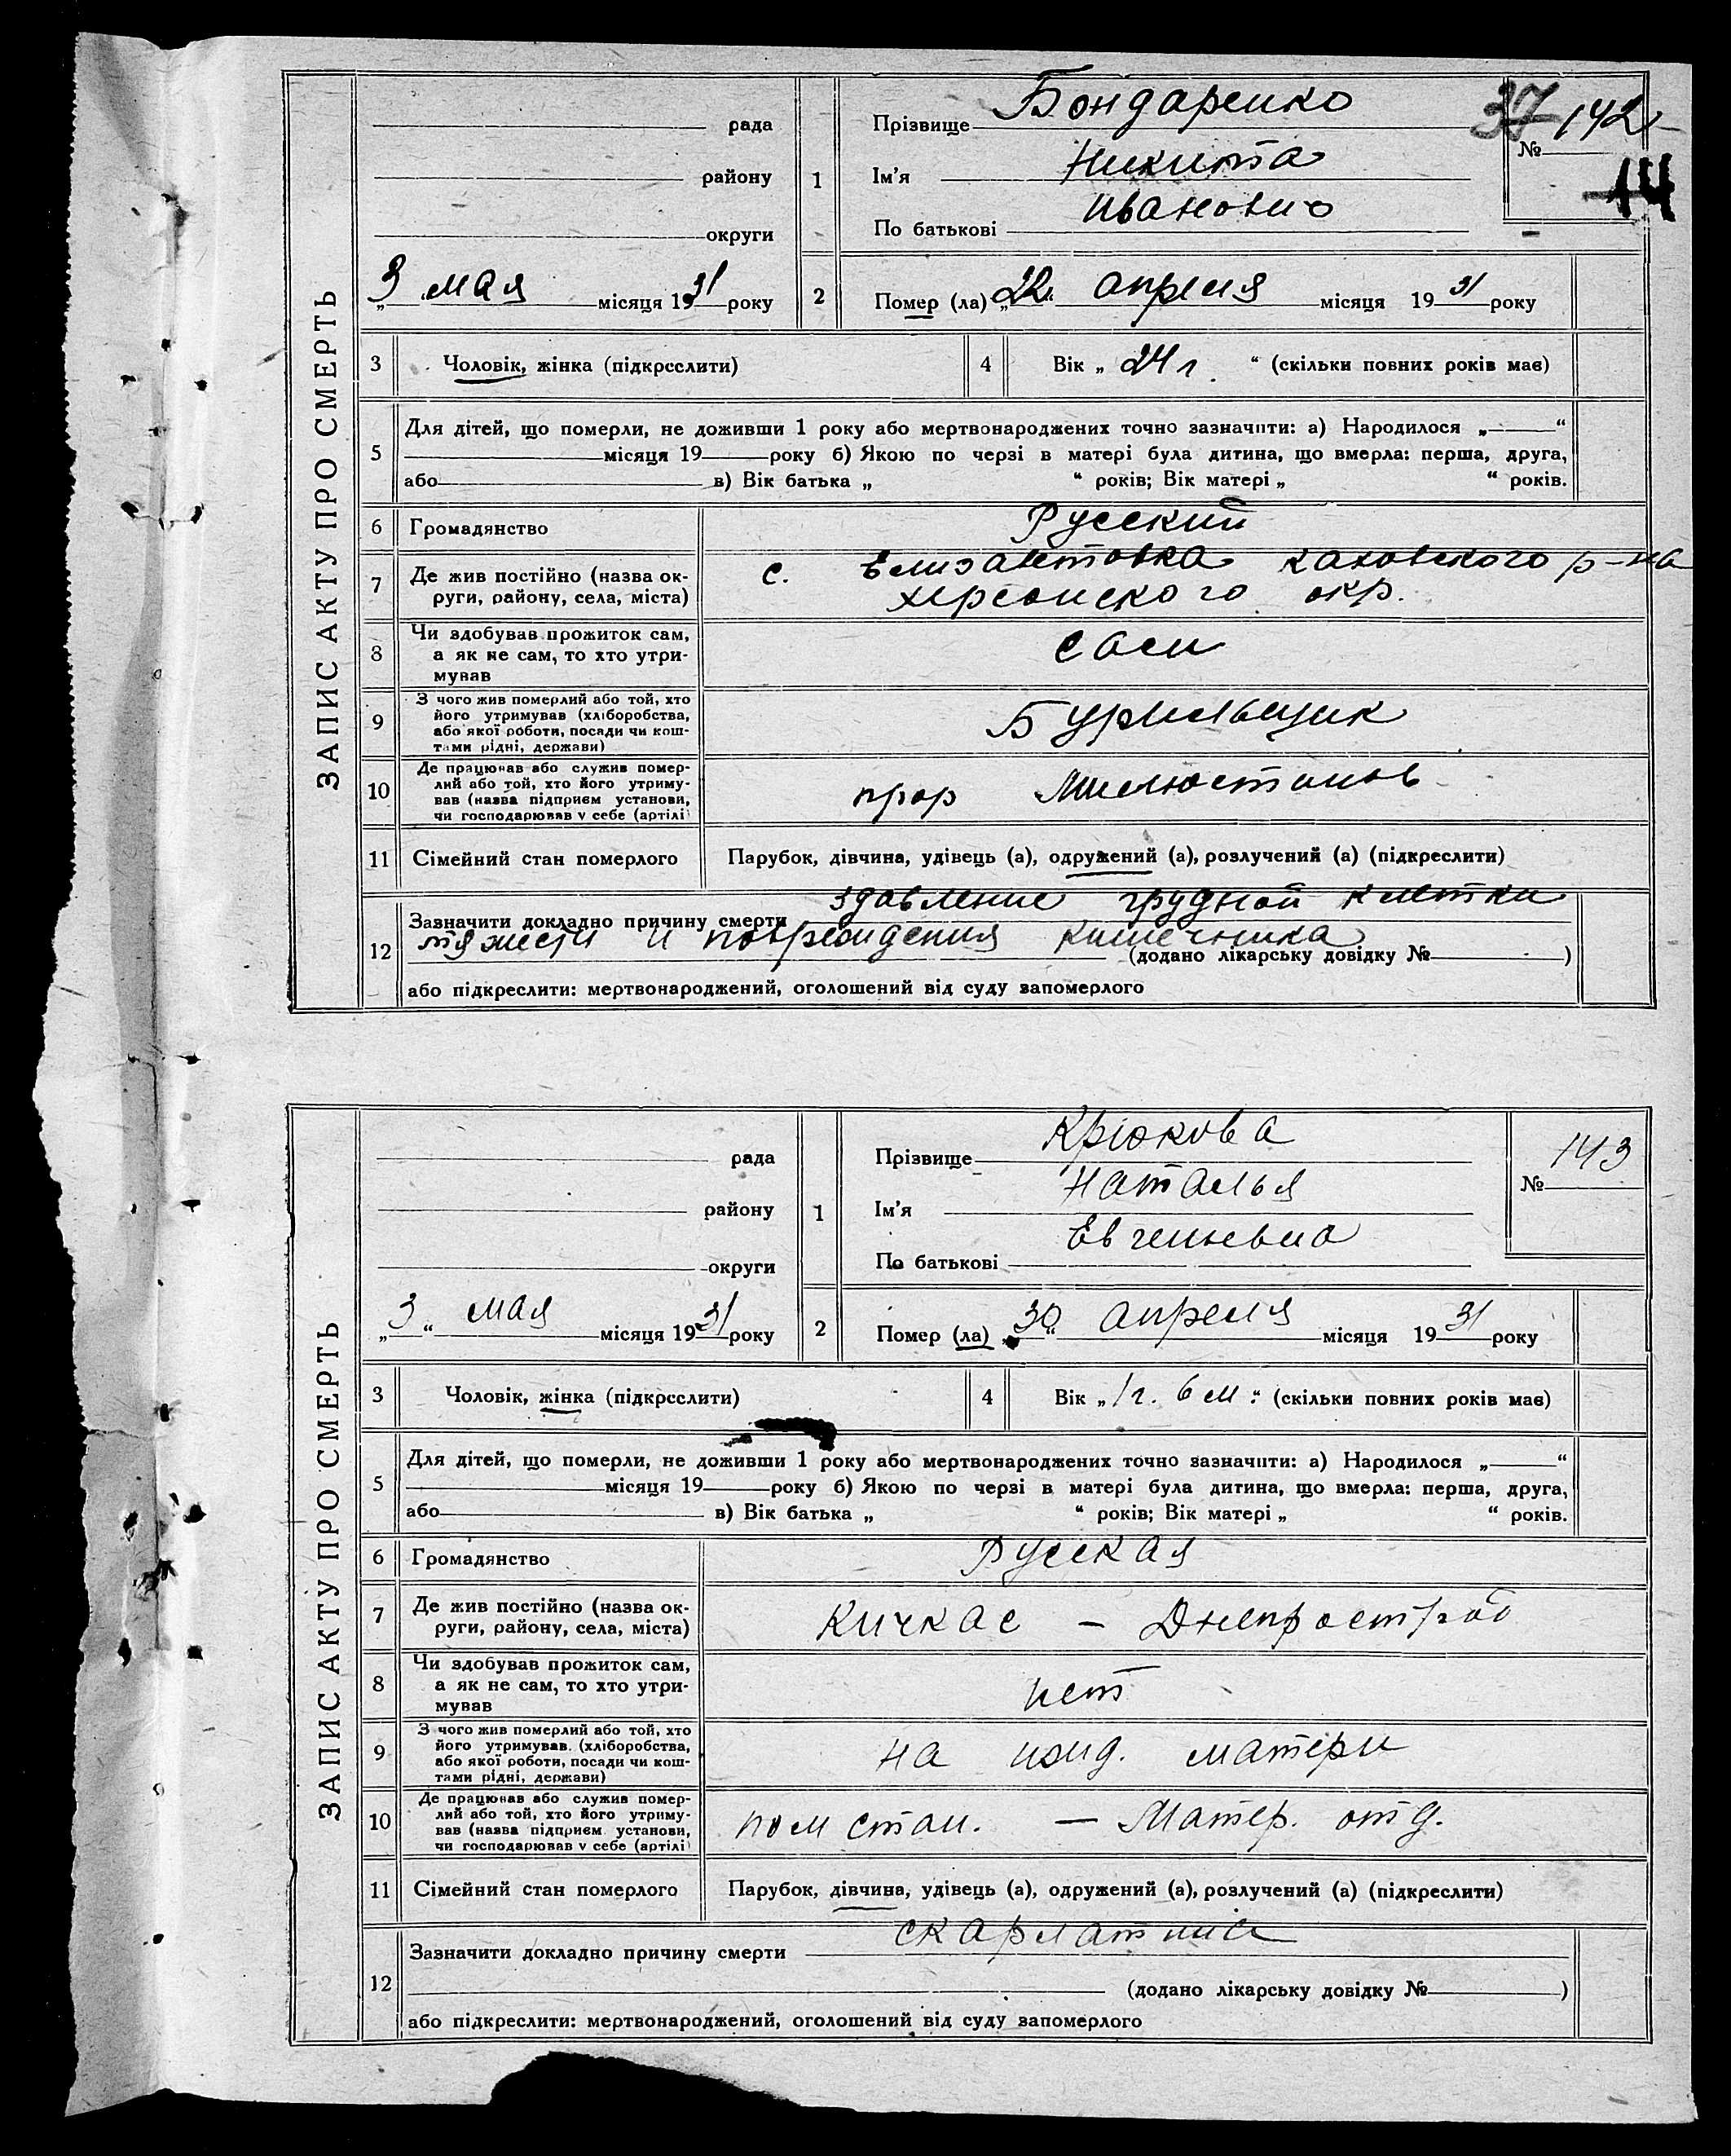 ЗАПИС АКТУ ПРО СМЕРТЬ
рада
району
округи
„3 мая місяця 1931 року
1
Прізвище Бондаренко
Ім'я Никита
По батькові Иванович
37 142
№
14
2
Помер (ла) „22“ апреля місяця 1931 року
3 Чоловік, жінка (підкреслити)
4 Вік „24 л.“ (скільки повних років має)
5
Для дітей, що померли, не доживши 1 року або мертвонароджених точно зазначити: а) Народилося „ “
місяця 19 року б) Якою по черзі в матері була дитина, що вмерла: перша, друга,
або в) Вік батька „ “ років; Вік матері „ “ років.
6 Громадянство Русский
7 Де жив постійно (назва ок-
руги, району, села, міста)
с. Каховского р-на
Херсонского окр.
8 Чи здобував прожиток сам,
а як не сам, то хто утри-
мував
сам
9 З чого жив померлий або той, хто
його утримував (хліборобства,
або якої роботи, посади чи кош-
тами рідні, держави)
Бурильщик
10 Де працював або служив помер-
лий або той, хто його утриму-
вав (назва підприєм установи,
чи господарював у себе (артілі)
11 Сімейний стан померлого Парубок, дівчина, удівець (а), одружений (а), розлучений (а) (підкреслити)
12 Зазначити докладно причину смерти здавление грудной клетки
и повреждения кишечника
(додано лікарську довідку № )
або підкреслити: мертвонароджений, оголошений від суду запомерлого
ЗАПИС АКТУ ПРО СМЕРТЬ
рада
району
округи
„3“ мая місяця 1931 року
1
Прізвище Крюкова
Ім'я Наталья
По батькові Евгеньевна
143
№
2
Помер (ла) „30“ апреля місяця 1931 року
3 Чоловік, жінка (підкреслити)
4 Вік „1 г. 6 м.“ (скільки повних років має)
5
Для дітей, що померли, не доживши 1 року або мертвонароджених точно зазначити: а) Народилося „ “
місяця 19 року б) Якою по черзі в матері була дитина, що вмерла: перша, друга,
або в) Вік батька „ “ років; Вік матері „ “ років.
6 Громадянство Русская
7 Де жив постійно (назва ок-
руги, району, села, міста)
Кичкас – Днепрострой
8 Чи здобував прожиток сам,
а як не сам, то хто утри-
мував
нет
9 З чого жив померлий або той, хто
його утримував. (хліборобства,
або якої роботи, посади чи кош-
тами рідні, держави)
на ижд. матери
10 Де працював або служив помер-
лий або той, хто його утриму-
вав (назва підприєм установи,
чи господарював у себе (артілі)
– Матер. отд.
11 Сімейний стан померлого Парубок, дівчина, удівець (а), одружений (а), розлучений (а) (підкреслити)
12 Зазначити докладно причину смерти скарлатина
(додано лікарську довідку № )
або підкреслити: мертвонароджений, оголошений від суду запомерлого